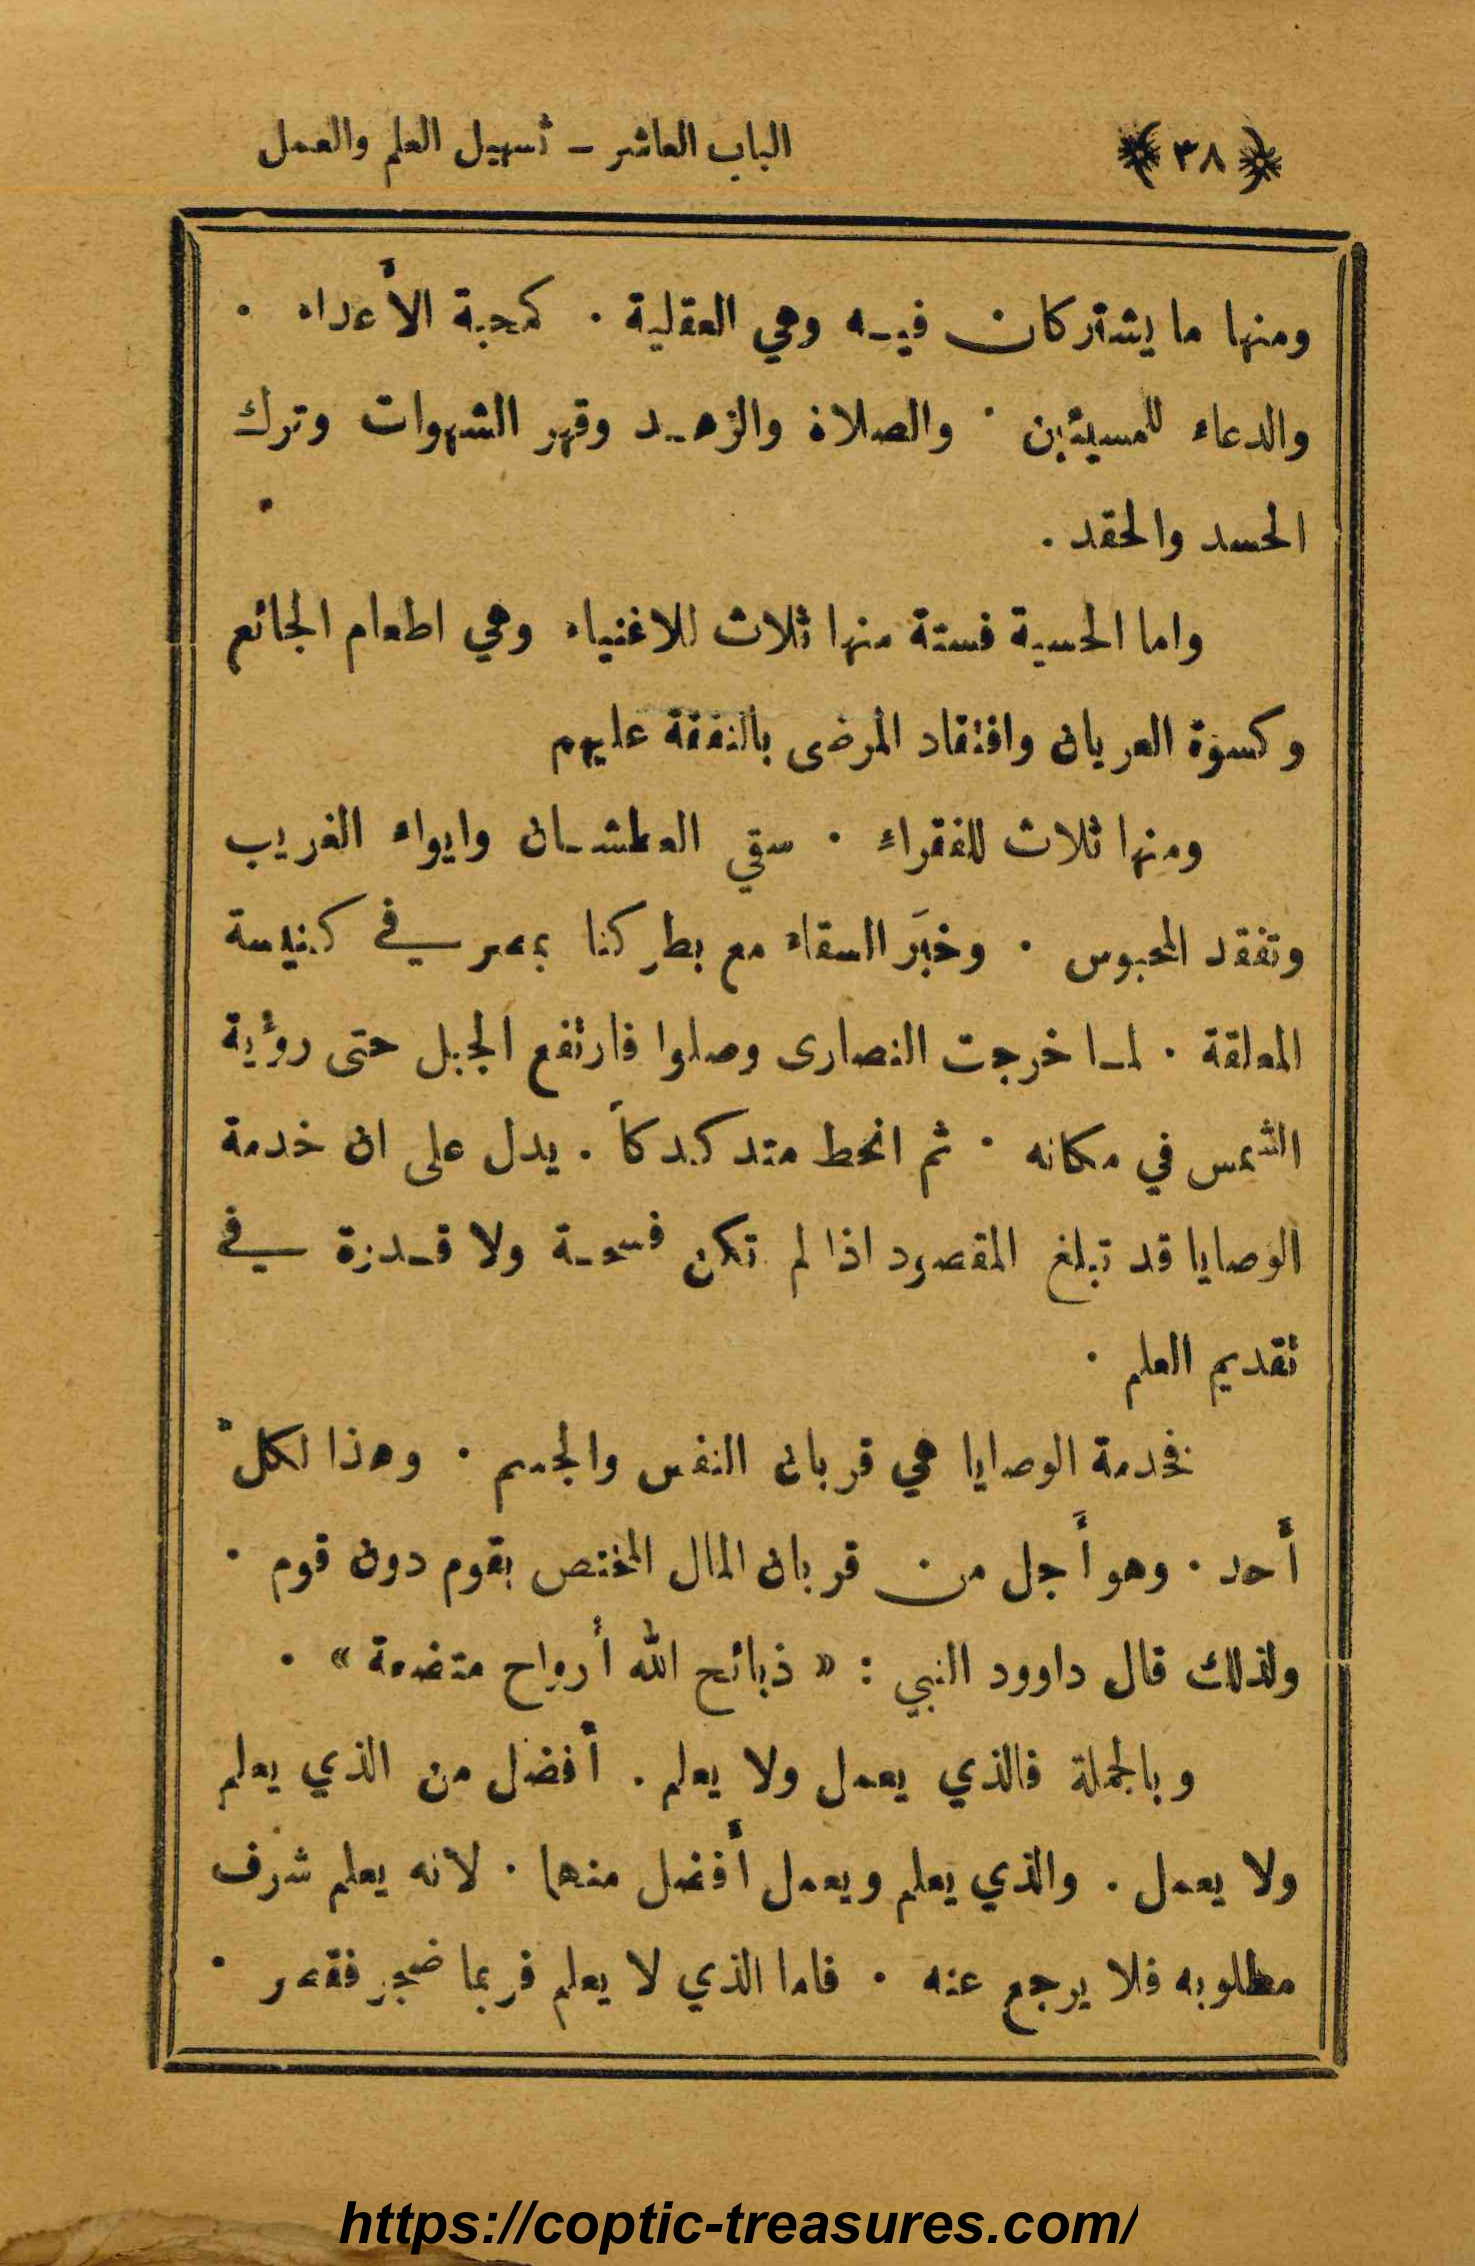 ﴿ ٣٨ ﴾ الباب العاشر – تسهيل العلم والعمل
ومنها ما يشتركان فيه وهي العقلية . كمحبة الأعداء .
والدعاء للمسيئين . والصلاة والزهد وقهر الشهوات وترك
الحسد والحقد .
واما الحسية فستة منها ثلاث للاغنياء وهي اطعام الجائع
وكسوة العريان وافتقاد المرضى بالنفقة عليهم
ومنها ثلاث للفقراء . سقي العطشان وايواء الغريب
وتفقد المحبوس . وخبَر السقاء مع بطركنا بمصر في كنيسة
المعلقة . لما خرجت النصارى وصلوا فارتفع الجبل حتى رؤية
الشمس في مكانه . ثم انحط متدكدكاً . يدل على ان خدمة
الوصايا قد تبلغ المقصود اذا لم تكن فسحة ولا قدرة في
تقديم العلم .
فخدمة الوصايا هي قربان النفس والجسم . وهذا لكلّ
أحد . وهو أَجل من قربان المال المختص بقوم دون قوم .
ولذلك قال داوود النبي : « ذبائح الله أرواح متضعة » .
وبالجملة فالذي يعمل ولا يعلم . أفضل من الذي يعلم
ولا يعمل . والذي يعلم ويعمل أفضل منهما . لانه يعلم شرف
مطلوبه فلا يرجع عنه . فاما الذي لا يعلم فربما ضجر فقصر .
https://coptic-treasures.com/